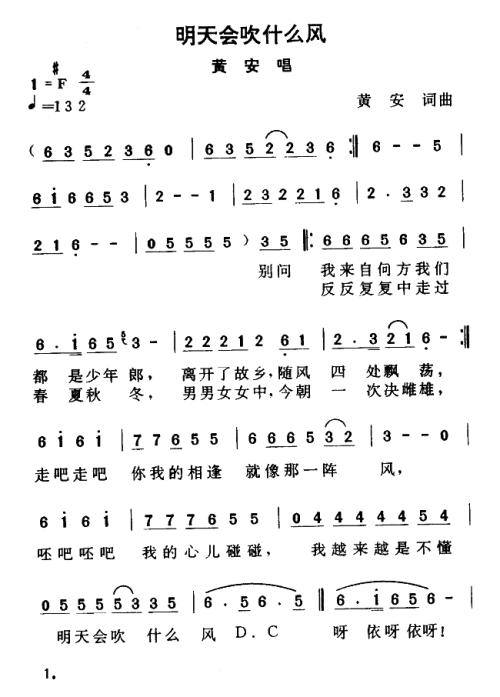 明天会吹什么风
黄安 唱
1 = #F 4/4
♩=132
黄安 词曲
( 6 3 5 2 2 3 6 0 | 6 3 5 2 2 3 6 :‖ 6 - - 5 |
6 i 6 6 5 3 | 2 - - 1 | 2 3 2 2 1 6 | 2 · 3 3 2 |
2 1 6 - - | 0 5 5 5 5 ) 3 5 ‖: 6 6 6 5 6 3 5 |
别问 我来自何方我们
反反复复中走过
6 · i 6 5 5 3 - | 2 2 2 1 2 6 1 | 2 · 3 2 1 6 - :‖
都 是少年 郎， 离开了故乡,随风 四 处飘 荡，
春 夏秋 冬， 男男女女中,今朝 一 次决 雌雄，
6 i 6 i | 7 7 6 5 5 | 6 6 6 5 3 2 | 3 - - 0 |
走吧走吧 你我的相逢 就像那一阵 风，
6 i 6 i | 7 7 7 6 5 5 | 0 4 4 4 4 4 5 4 |
呸吧呸吧 我的心儿碰碰， 我越来越是不懂
0 5 5 5 5 5 3 3 5 | 6 · 5 6 · 5 ‖ 6 · i 6 5 6 - |
明天会吹 什么 风 D.C 呀 依呀依呀!
1.